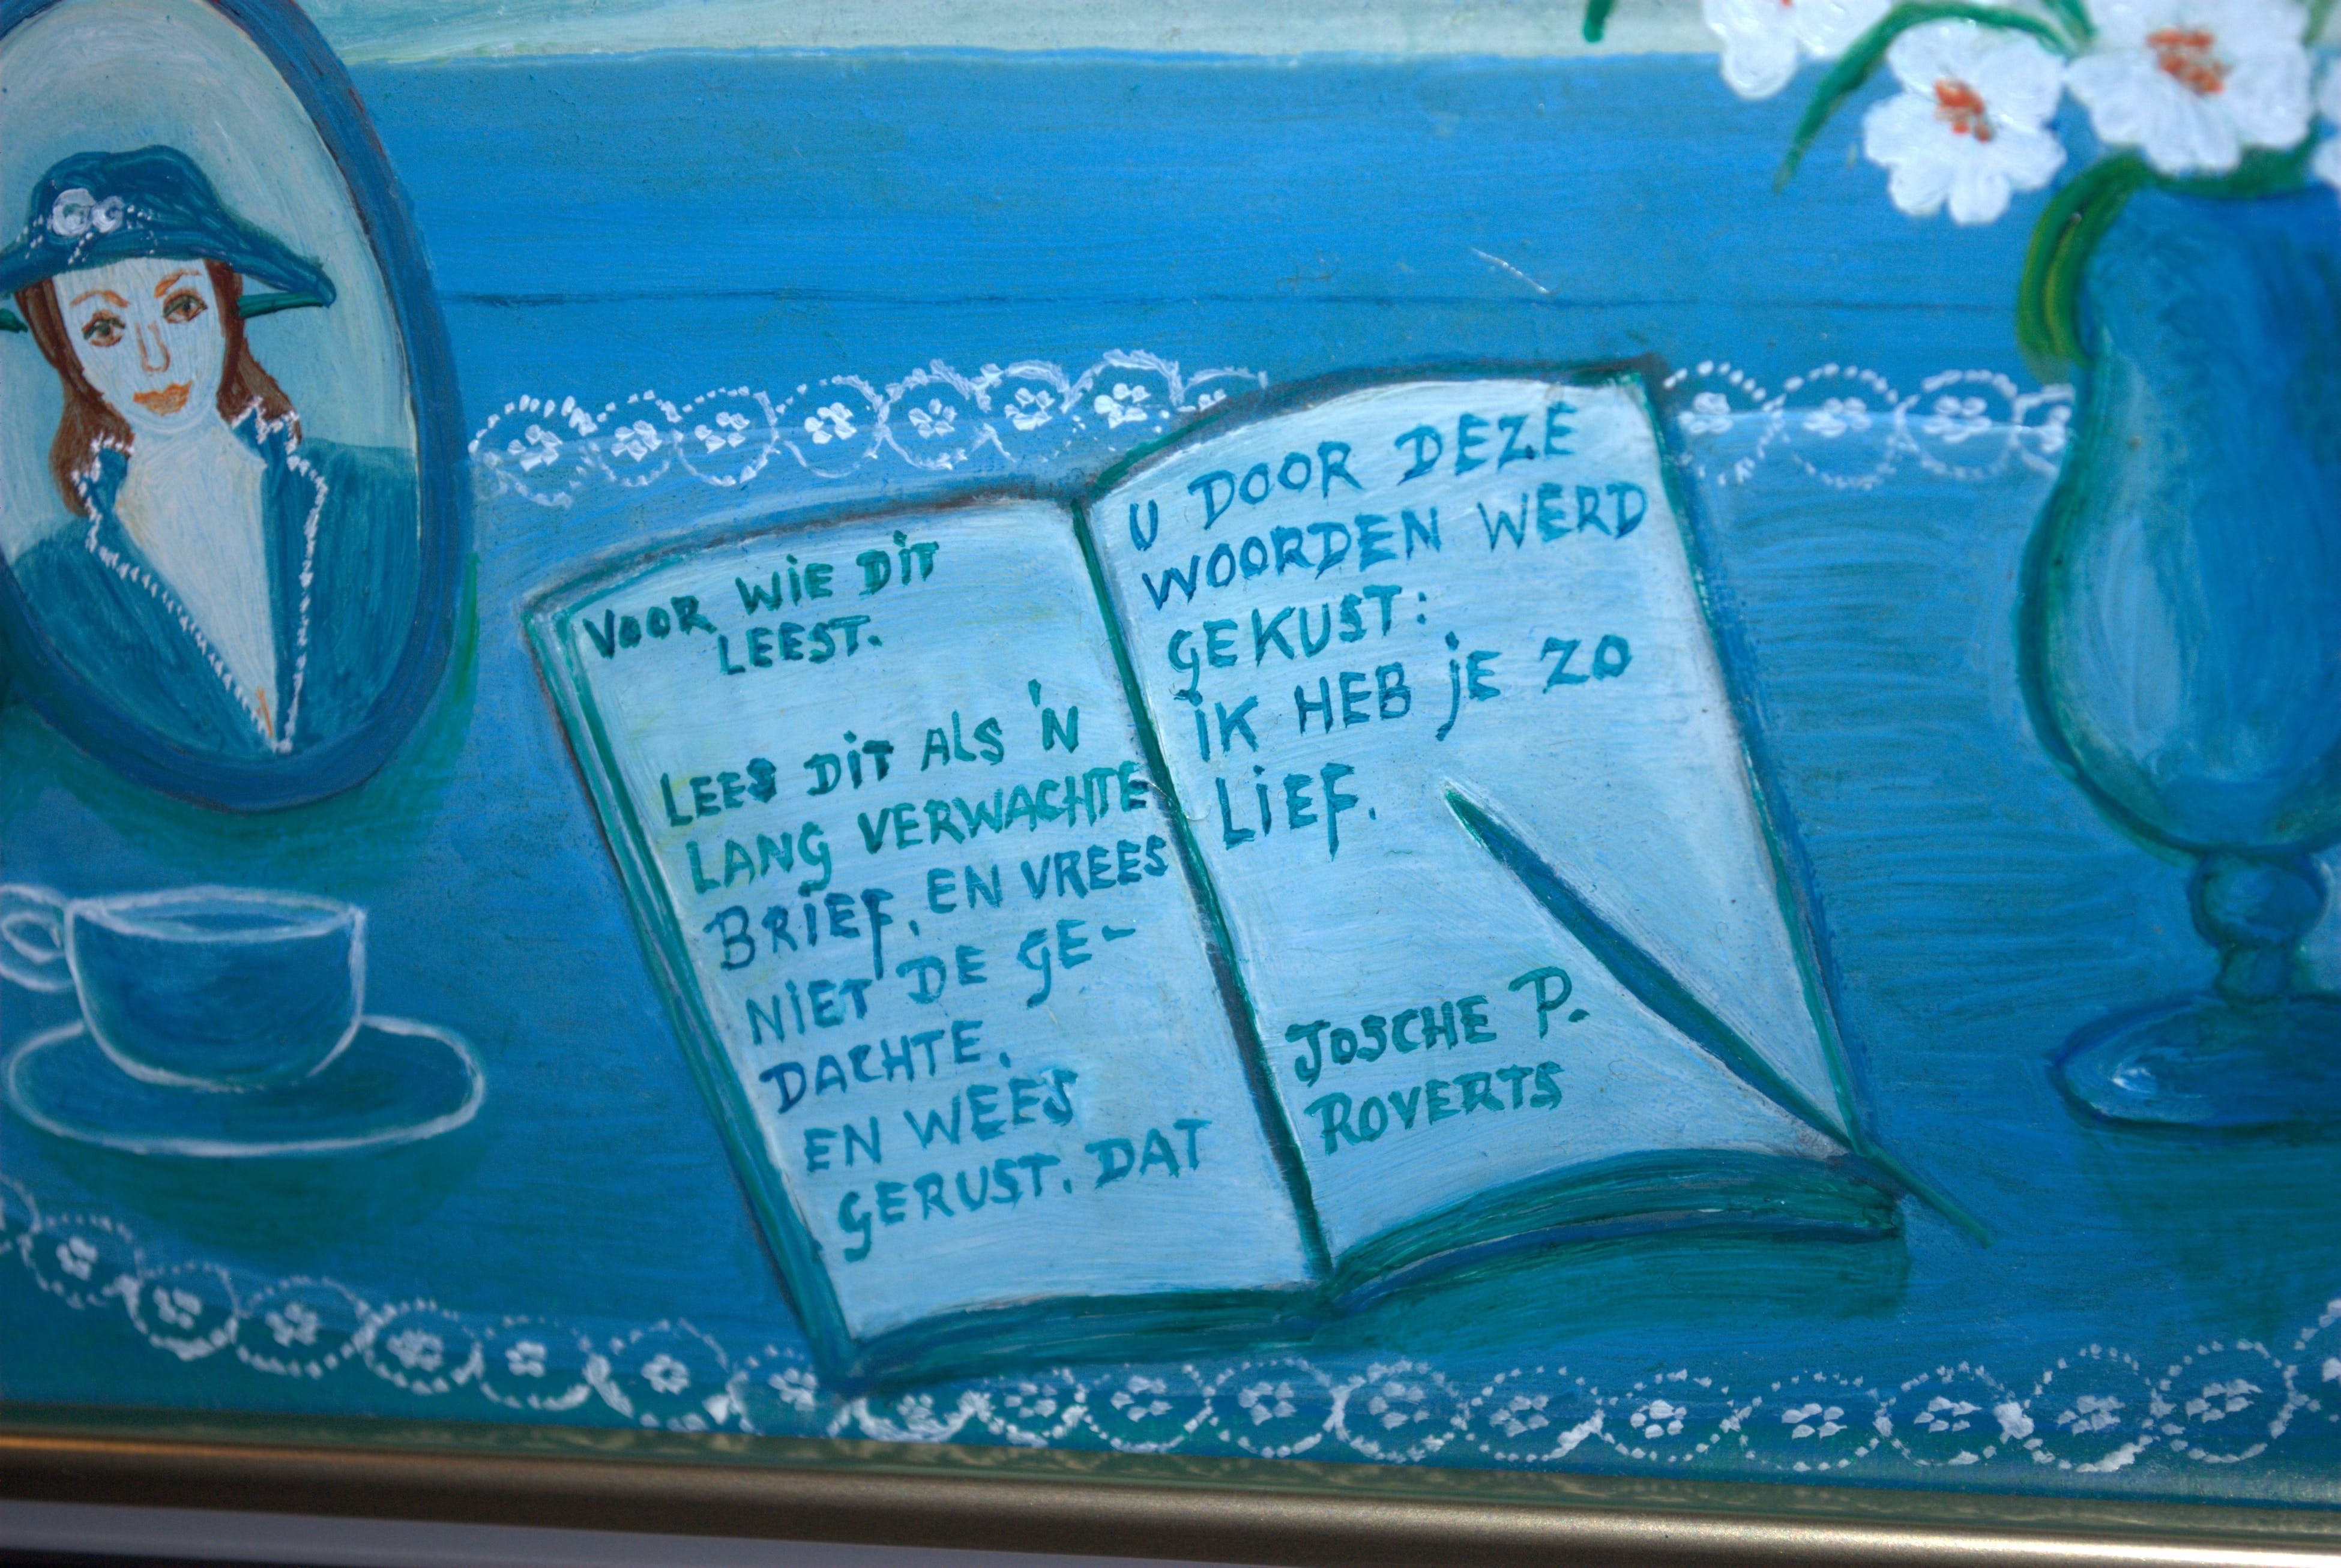 VOOR WIE DIT
LEEST.
LEES DIT ALS 'N
LANG VERWACHTE
BRIEF, EN VREES
NIET DE GE-
DACHTE,
EN WEES
GERUST, DAT
U DOOR DEZE
WOORDEN WERD
GEKUST:
IK HEB jE ZO
LIEF.
JOSCHE P.
ROVERTS